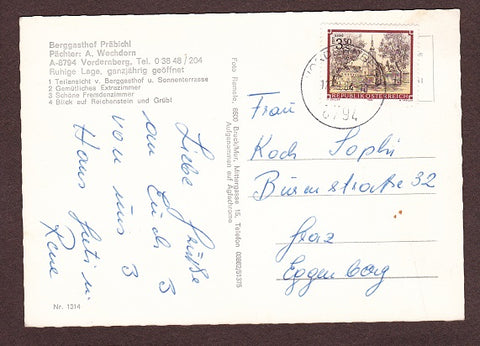 Berggasthof Präbichl
Pächter: A. Wechdorn
A-8794 Vordernberg, Tel. 0 38 48 / 204
Ruhige Lage, ganzjährig geöffnet
1 Teilansicht v. Berggasthof u. Sonnenterrasse
2 Gemütliches Extrazimmer
3 Schöne Fremdenzimmer
4 Blick auf Reichenstein und Grübl
Liebe Grüße
an Euch 3
von uns 3
Hans
Rene
Nr. 1314
Foto Ramsle, 8600 Bruck/Mur, Mittergasse 15, Telefon
Aufgenommen auf Agfachrome
3.50
REPUBLIK ÖSTERREICH
8794
Frau
Koch Sophie
straße 32
Graz
Eggenberg